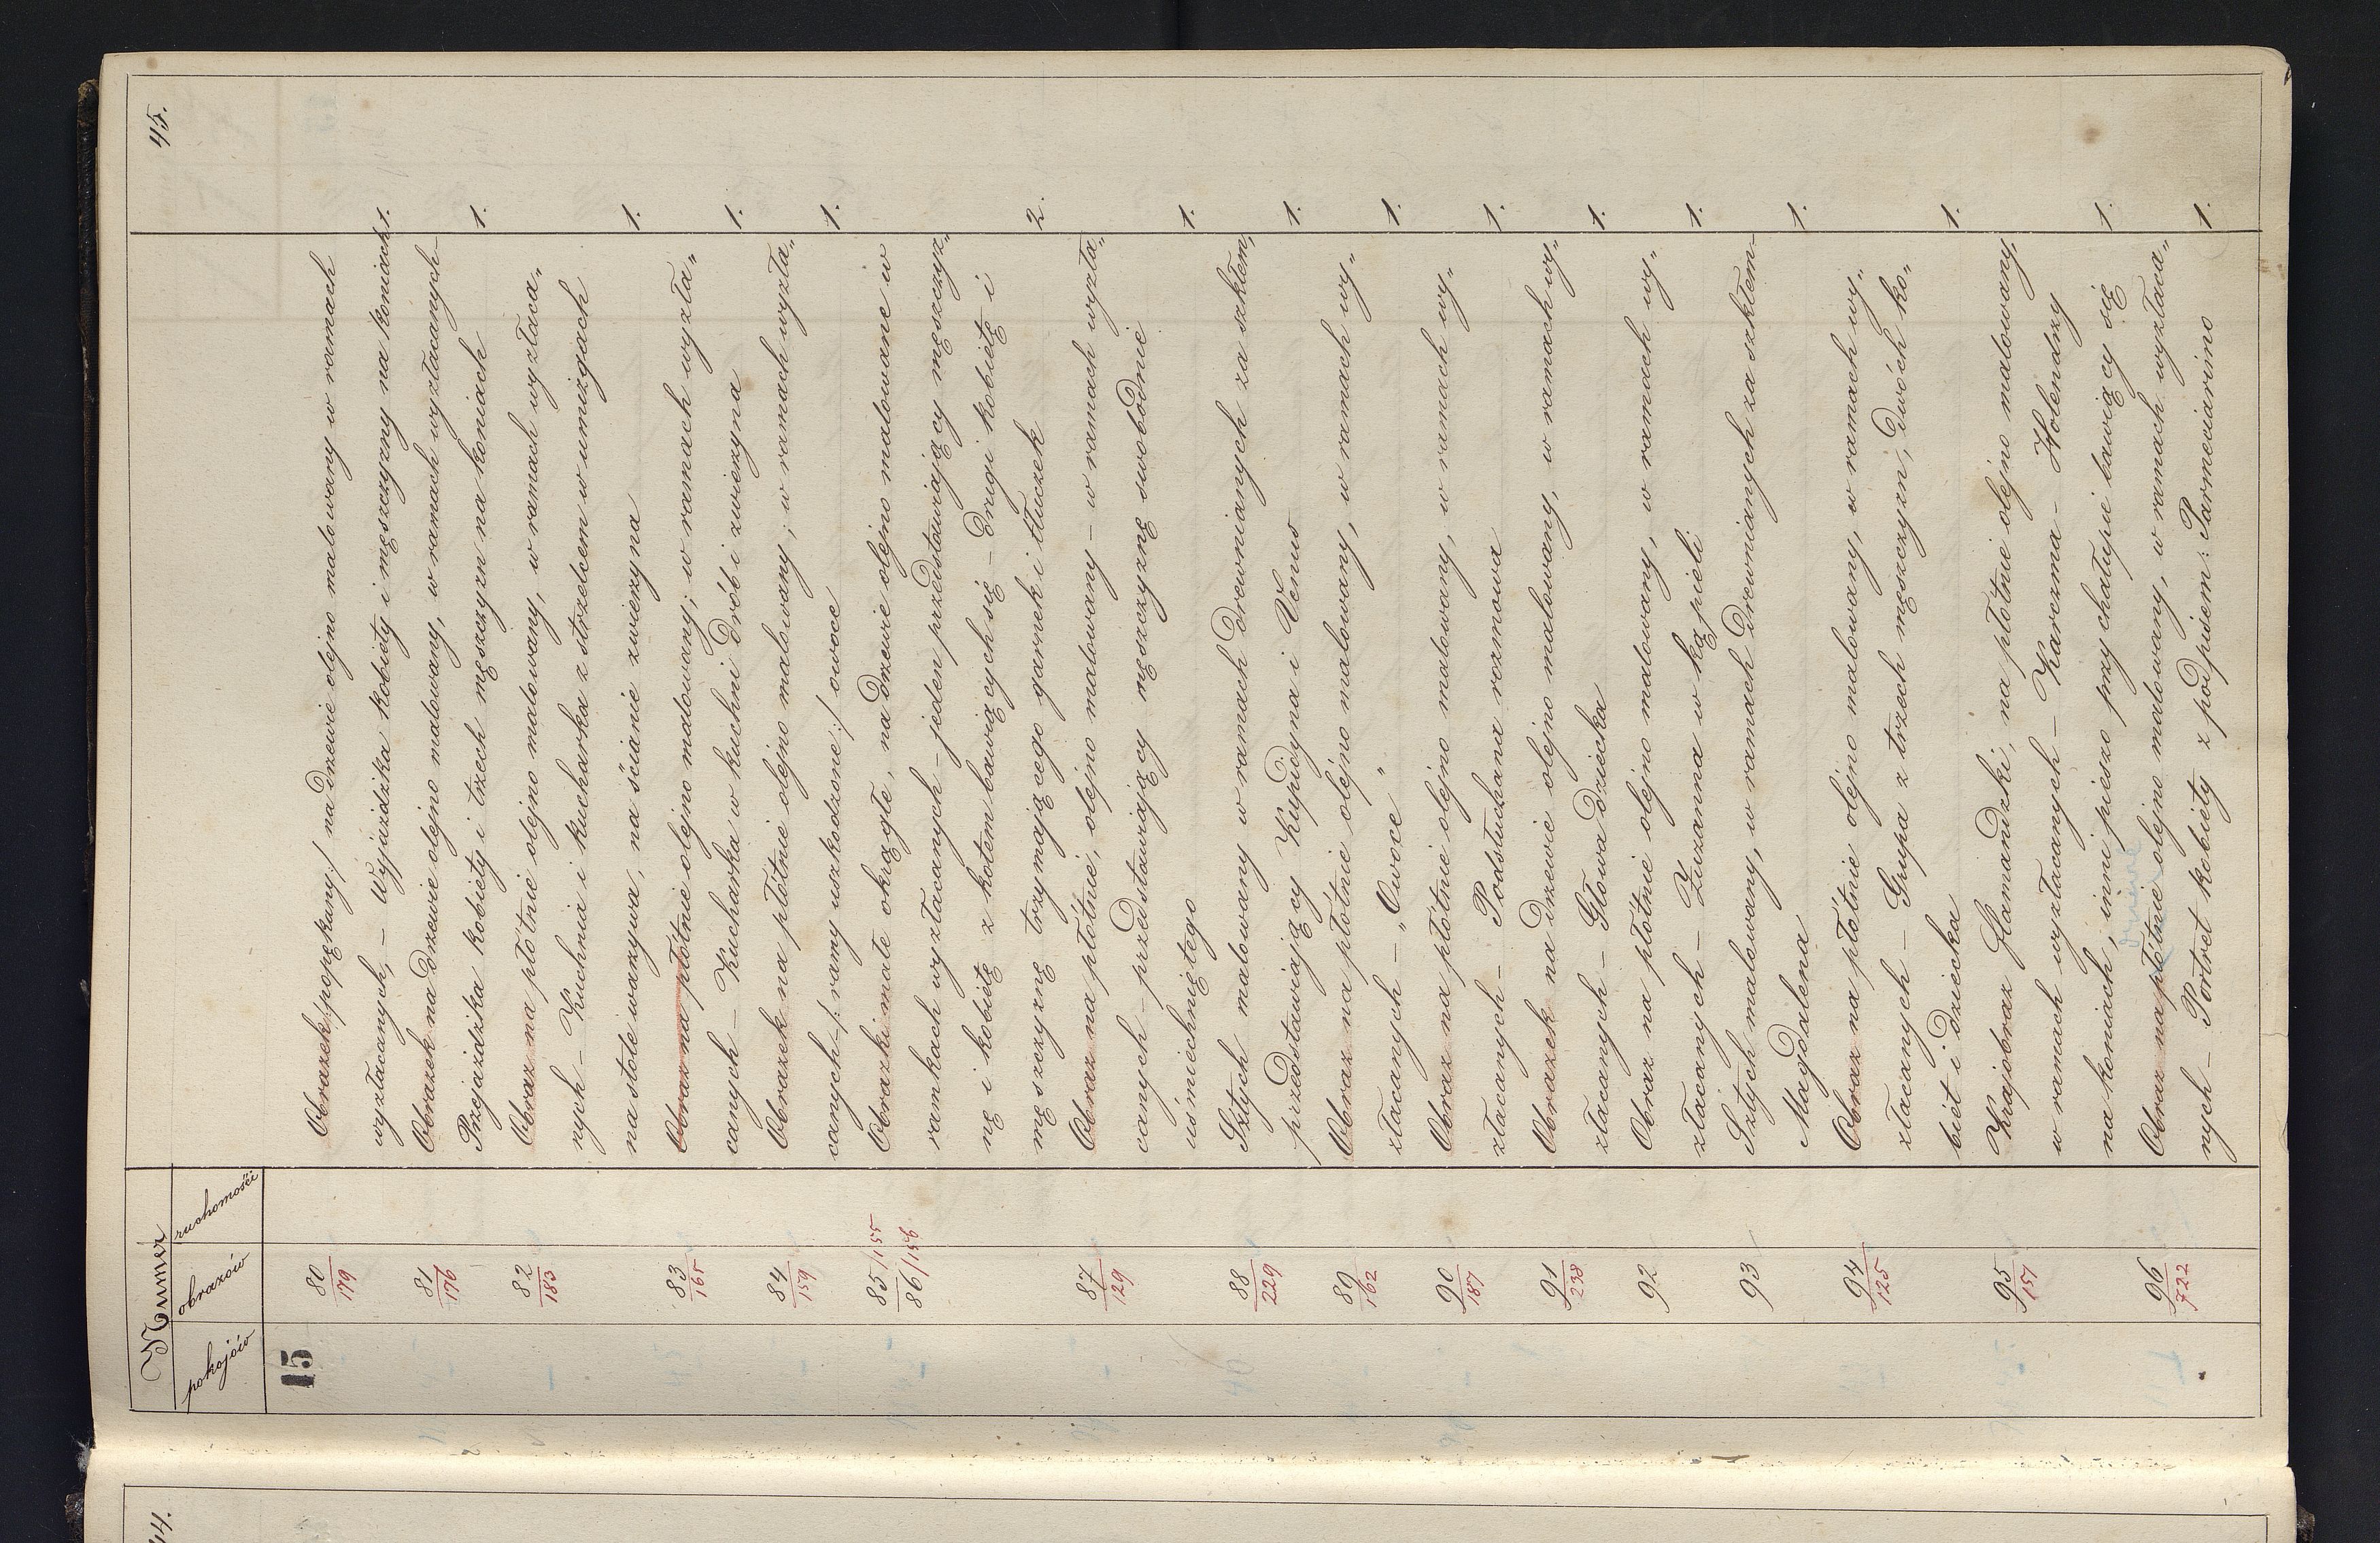 45.
Numer
pokojów obrazów ruchomości
15
80/179 Obrazek /popękany:/ na drzewie olejno malowany w ramach
wyzłacanych, – Wyjażdżka kobiety i męszczyzny na koniach 1.
81/176 Obrazek na drzewie olejno malowany, w ramach wyzłacanych –
Przejażdżka kobiety i trzech męszczyzn na koniach 1.
82/183 Obraz na płótnie olejno malowany, w ramach wyzłaca„
nych – Kuchnia i kucharka z strzelcem w umizgach
na stole warzywa, na ścianie zwierzyna 1.
83/165 Obraz na płótnie olejno malowany; w ramach wyzła„
canych – Kucharka w kuchni drób i zwierzyna 1.
84/159 Obrazek na płótnie olejno malowany; w ramach wyzła„
canych /: ramy uszkodzone:/ owoce 1.
85/155 Obrazki małe okrągłe, na drzewie olejno malowane w
86/156 ramkach wyzłacanych – jeden przedstawiający męszczyz„
nę i kobiétę z kotem bawiących się – drugi kobiétę i
męszczyznę trzymającego garnek i tłuczek 2.
87/129 Obraz na płótnie, olejno malowany – w ramach wyzła„
canych – przedstawiający męszczyznę swobodnie
uśmiechniętego 1.
88/229 Sztych malowany w ramach drewnianych za szkłem,
przedstawiający Kupidyna i Venus 1.
89/162 Obraz na płótnie olejno malowany, w ramach wy„
złacanych – „Owoce” 1.
90/187 Obraz na płótnie olejno malowany, w ramach wy„
złacanych – Podsłuchana rozmowa 1.
91/238 Obrazek na drzewie olejno malowany, w ramach wy„
złacanych – Głowa dziecka 1.
92 Obraz na płótnie olejno malowany, w ramach wy„
złacanych – Zuzanna w kąpieli 1.
93 Sztych malowany, w ramach drewnianych za szkłem –
Magdalena 1.
94/125 Obraz na płótnie olejno malowany, w ramach wy„
złacanych – Grupa z trzech męszczyzn, dwóch ko„
biét i dziecka 1.
95/151 Krajobraz flamandzki, na płótnie olejno malowany
w ramach wyzłacanych – Karczma – Holendrzy
na koniach, inni pieszo przy chałupie bawiący się 1.
drzewie
96/722 Obraz na płótnie olejno malowany, w ramach wyzłaca„
nych – Portret kobiéty z podpisem: Parmeciarino 1.
44.